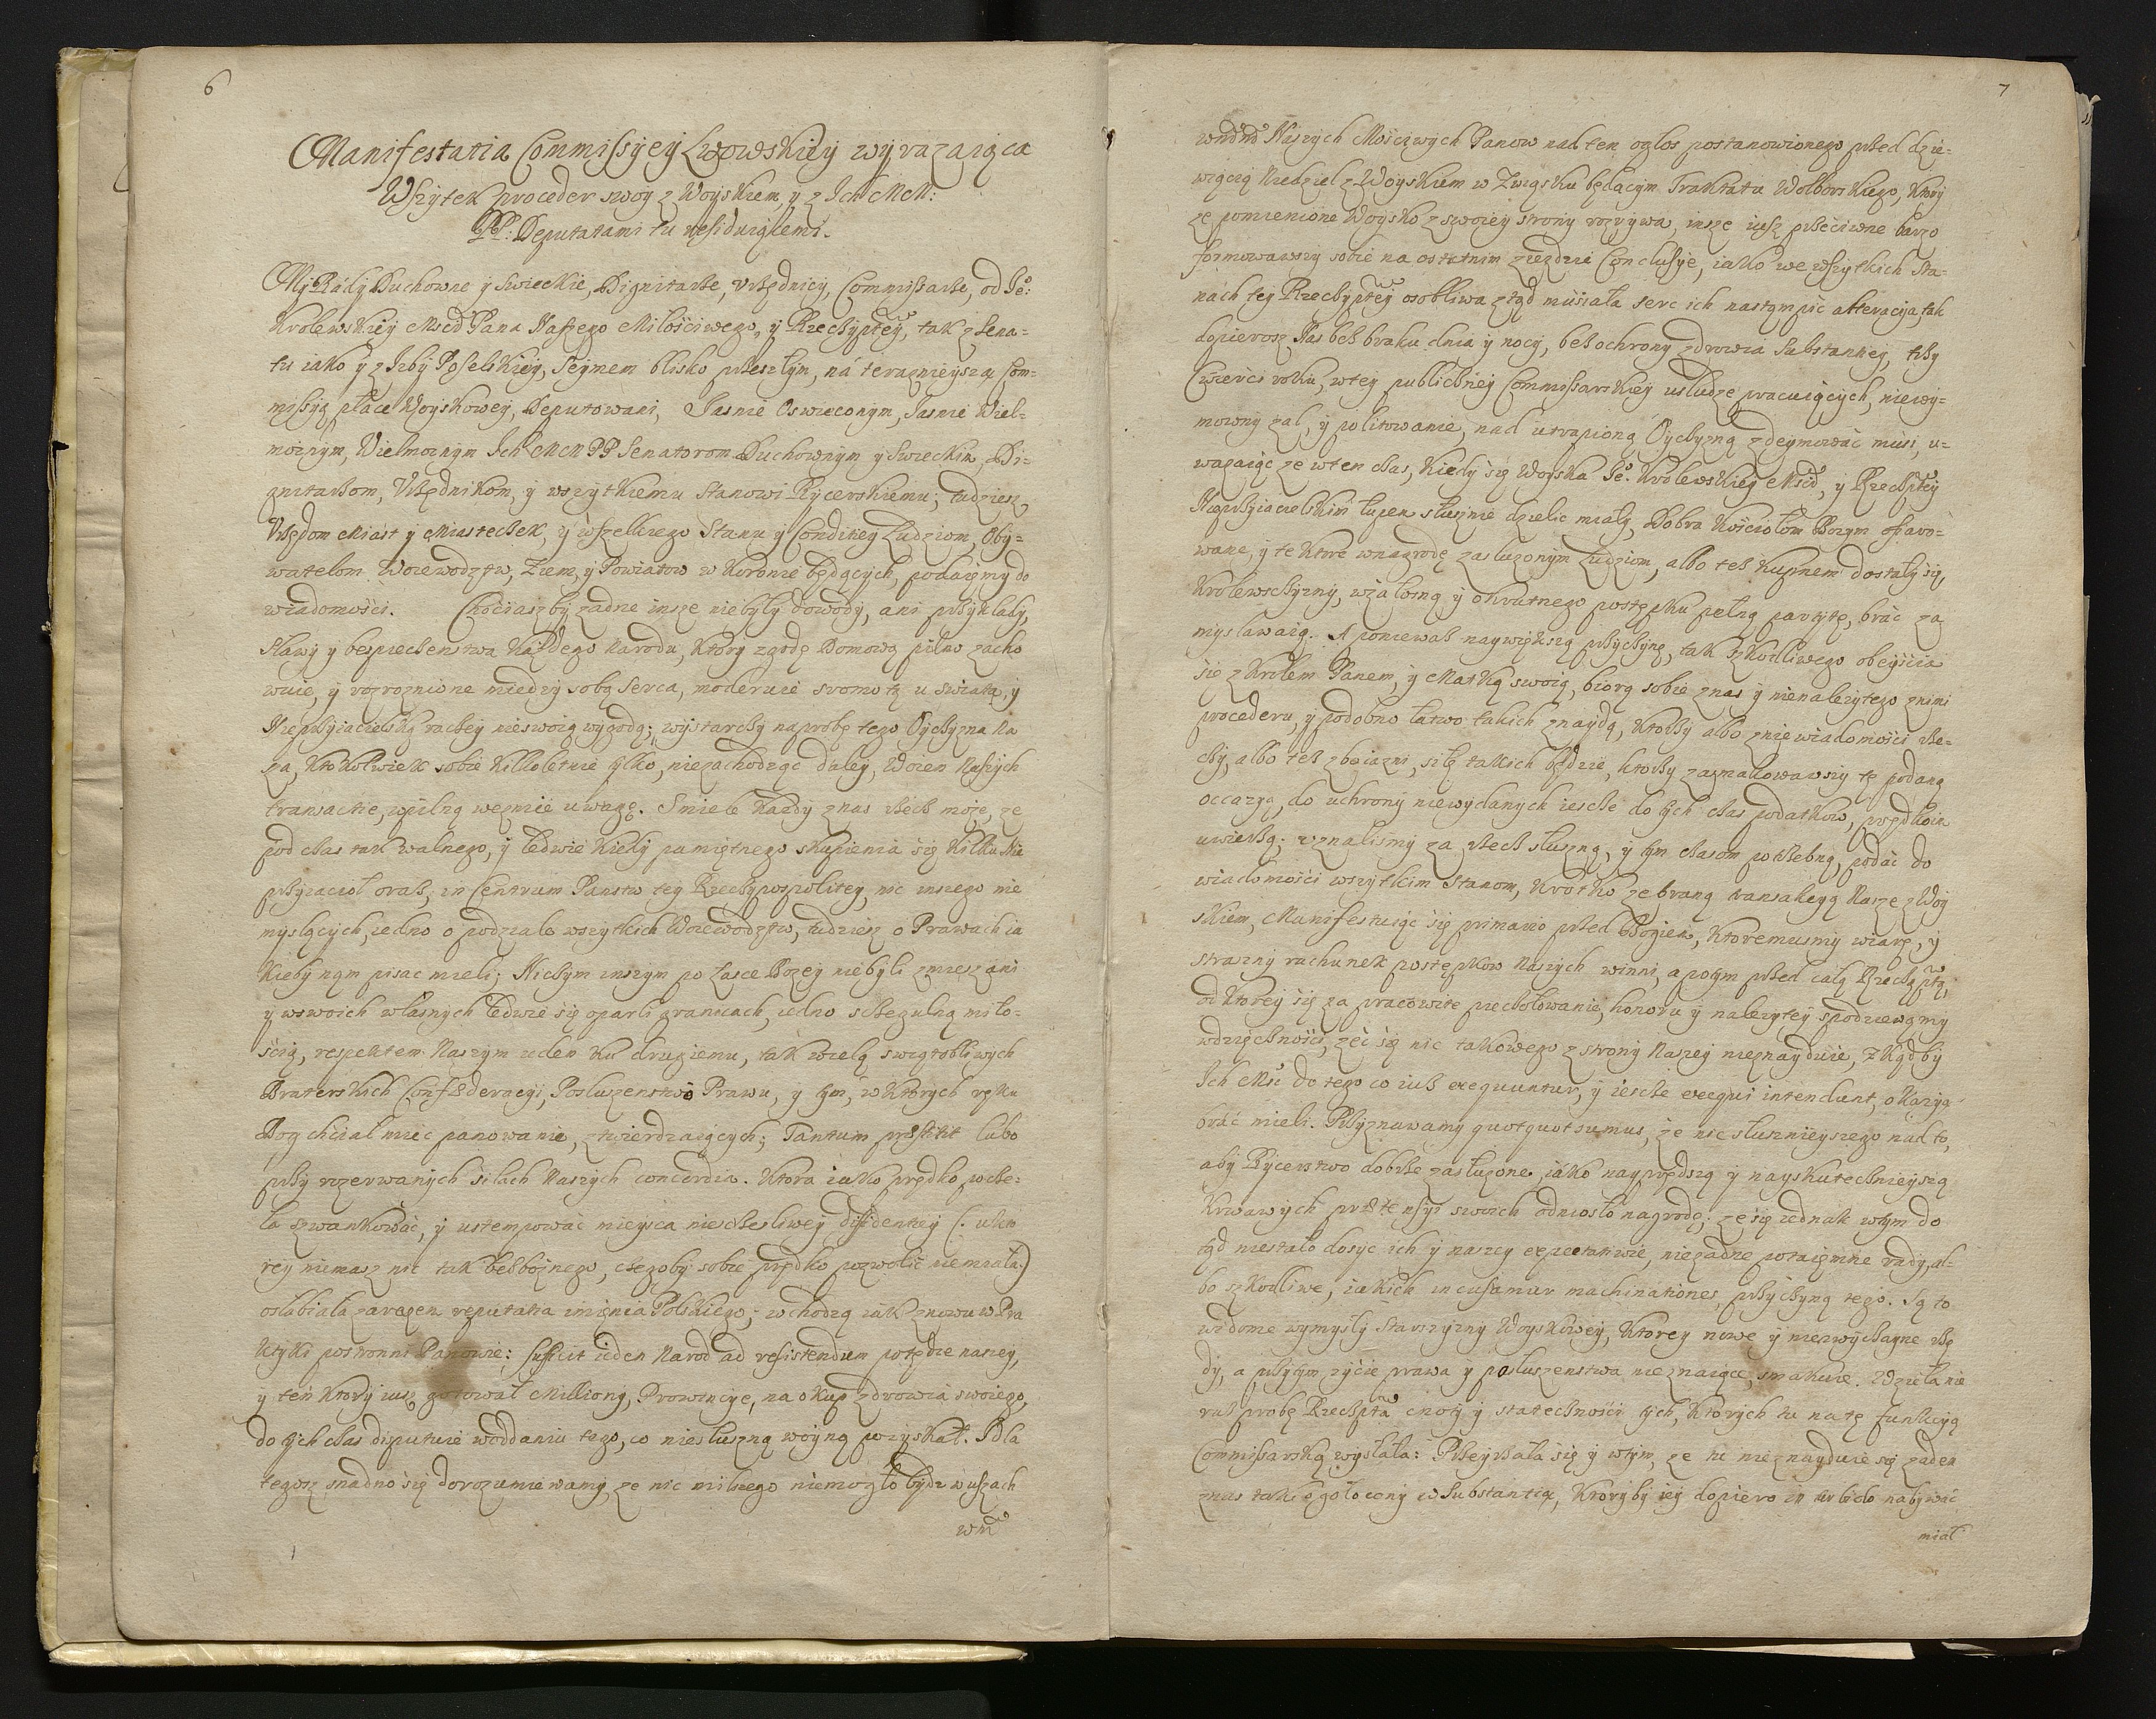 6
Manifestatia Commissyey Lwowskiey wyrazaiąca
Wszytek proceder swoy z Woyskiem, y z Ich MM:
PP: Deputatami tu residuiącemi.
My Rády Duchowne y Swieckie, Dignitarze, Vrzędnicy, Commissarze, od Je°:
Krolewskiey Mści Pana Naszego Miłościwego, y Rzeczyptey, tak z Sena=
tu iako y z Izby Poselskiey, Seymem blisko przeszłym, ná terazniejszą Com=
missyą płace Woyskowey, Deputowani, Jasnie Oswieconym, Jasnie Wiel=
możnym, Wielmoznym Ich MM PP Senatorom Duchownym y Swieckim, Di=
gnitarzom, Vrzędnikom, y wszytkiemu Stanowi Rycerskiemu; tudziesz
Vrzędom Miast y Miasteczek, y wszelkiego Stanu y Conditiey Ludziom, Oby=
watelom Woiewodztw, Ziem, y Powiatow w Koronie będących, podaięmy do
wiadomości. Chociaszby żadne insze niebyły dowody, ani przykłady,
Sławy y bespieczenstwa każdego Narodu, ktory zgodę Domową pilno zacho
wuie, y rozroznione miedzy sobą Serca, moderuie sromotą u Swiata, y
Nieprzyiacielską raczey nieswoią wygodą; wystarczy na probę tego Oyczyzna Na
sza, ktokolwiek sobie kilkoletnie tylko, niezachodząc daley, Woien Naszych
transactie, wpilną wezmie uwagę. Smiele każdy znas rzecz może, ze
pod czas tak walnego, y ledwie kiedy pamiętnego skupienia się kilku Nie
przyiacioł oraz, in Centrum Panstw tey Rzeczypospolitey, nic inszego nie
myslących, iedno o podziale wszytkich Woiewodztw, tudziesz o Prawach ia
kieby nąm pisac mieli; Niczym inszym po Łasce Bozey niebyli zmieszani
y wswoich własnych ledwie się oparli granicach, iedno szczegulną miło=
ścią, respektem Naszym ieden ku drugiemu, tak wielą swiątobliwych
Braterskich Confœderacyi, Posluzenstwo Prawu, y tym, w ktorych ręku
Bog chciał miec panowanie, ztwierdzaiących; Tantum præstitit lubo
przy rozerwanych siłach Naszych concordia. Ktora iako prędko pocze=
ła szwankować, y ustempować mieysca nieszczesliwey dissidentiey (: ukto
rey niemasz nic tak bezbożnego, czegoby sobie prędko pozwolić niemiała.)
osłabiała zarazem reputatia imięnia Polskiego; wchodzą iak znowu w Pra
ktyki postronni Panowie; sufficit ieden Narod ad resistendum potędze naszey,
y ten ktory iusz gotował Milliony, Prowincye, na okup zdrowia swoiego,
do tych czas disputuie woddaniu tego, co niesłuszną woyną pozyskał. Dla
tegosz snadno się dorozumiewamy, ze nic milszego niemogło bydz w uszach
wm
7
wmm Naszych Mościwych Panow nad ten ogłos postanowionego przed dzie=
wiącią Niedziel z Woyskiem w Związku będącym Traktatu Wolborskiego, ktory
ze pomienione Woysko zswoiey strony rozrywa, insze iusz przeciwne barzo
formowawszy sobie na ostatnim ziezdzie Conclusye, iako we wszytkich Sta=
nách tey Rzeczyptey osobliwa ztąd musiała serc ich nastąmpić alteracyia, tak
dopierosz Nas bez braku dnia y nocy, bez ochrony zdrowia Substantiey, trzy
Cwierci roku, wtey publiczney Commissarskiey usłudze pracuiących, niewy=
mowny zal, y politowanie, nad utrapioną Oyczyzną zdeymowác musi, u=
wazaiąc ze wten czas, kiedy się Woyska Je°. Krolewskiey Mści, y Rzeczptey
Nieprzyiacielskim łupem słusznie dzielic miały, Dobra Kościołom Bozym ofiaro=
wane, y te ktore wnagrodę zasłuzonym Ludziom, albo tesz kupnem dostały się,
Krolewsczyzny, wzałosną y okrutnego postępku pełną partytę, bráć za
myslawaią. A poniewasz naywiększą przyczynę, tak szkodliwego obeyścia
się z Krolem Panem, y Matką swoią, biorą sobie znas y nienalezytego znimi
procederu, y podobno łatwo takich znaydą, ktorzy albo zniewiadomości rze=
czy, albo tesz zboiazni, siłę takich będzie, ktorzy zasmakowawszy tę podaną
occazyą, do uchrony niewydanych iescze do tych czas podatkow, prędkoim
uwierzą; uznaliśmy za rzecz słuszną, y tym czasom potrzebną, podać do
wiadomości wszytkim Stanom, krotko zebraną transakcyą Nasze zWoy
skiem, Manifestuiąc się primario przed Bogiem, ktoremusmy wiarę, y
straszny rachunek postępkow Naszych winni, apotym przed całą Rzecząptą,
od ktorey się za pracowite pieczołowanie, honoru y nalezytey spodziewamy
wdzięczności, zeć się nic takowego zstrony Naszey nieznayduie, zkądby
Ich Mść do tego co iusz exequuntur, y iescze exequi intendunt, okazyą
bráć mieli. Przyznawamy quotquot sumus, że nic słusznieyszego nad to,
aby Rycerstwo dobrze zasłuzone, iáko nayprędszą y nayskutecznieyszą
Krwawych prætensyi swoich odniosło nagrodę; ze się iednak wtym do
tąd niestało dosyc ich y naszey expectatiwie, niezadne potaięmne rady, al=
bo szkodliwe, iakich incusamur machinationes, przyczyną tego. Są to
widome wymysły Starszyzny Woyskowey, ktorey nowe y niezwyczayne rzą
dy, a przytym zycie prawa y posłuszenstwa nieznaiące, smakuie. Wzięła nie
raz probę Rzeczpta cnoty y stateczności tych, ktorych tu na tę funkcyą
Commissarską wysłała: Przeyrzała się y wtym, ze tu nieznayduie się zaden
znas tak ogołocony w Substantią, ktoryby iey dopiero in turbido nabywać
miał